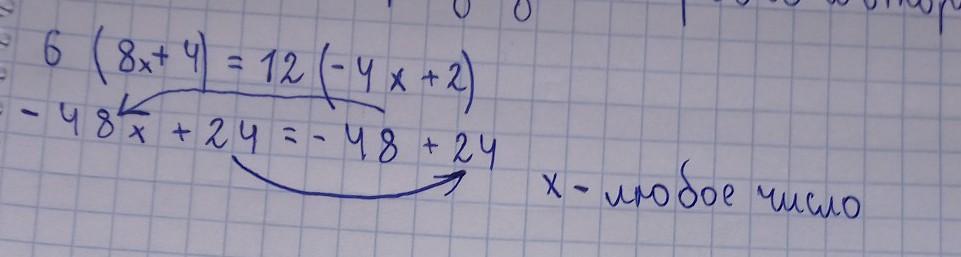 6 (8x+4) = 12 (-4x+2)
-48x + 24 = -48 + 24
x - любое число